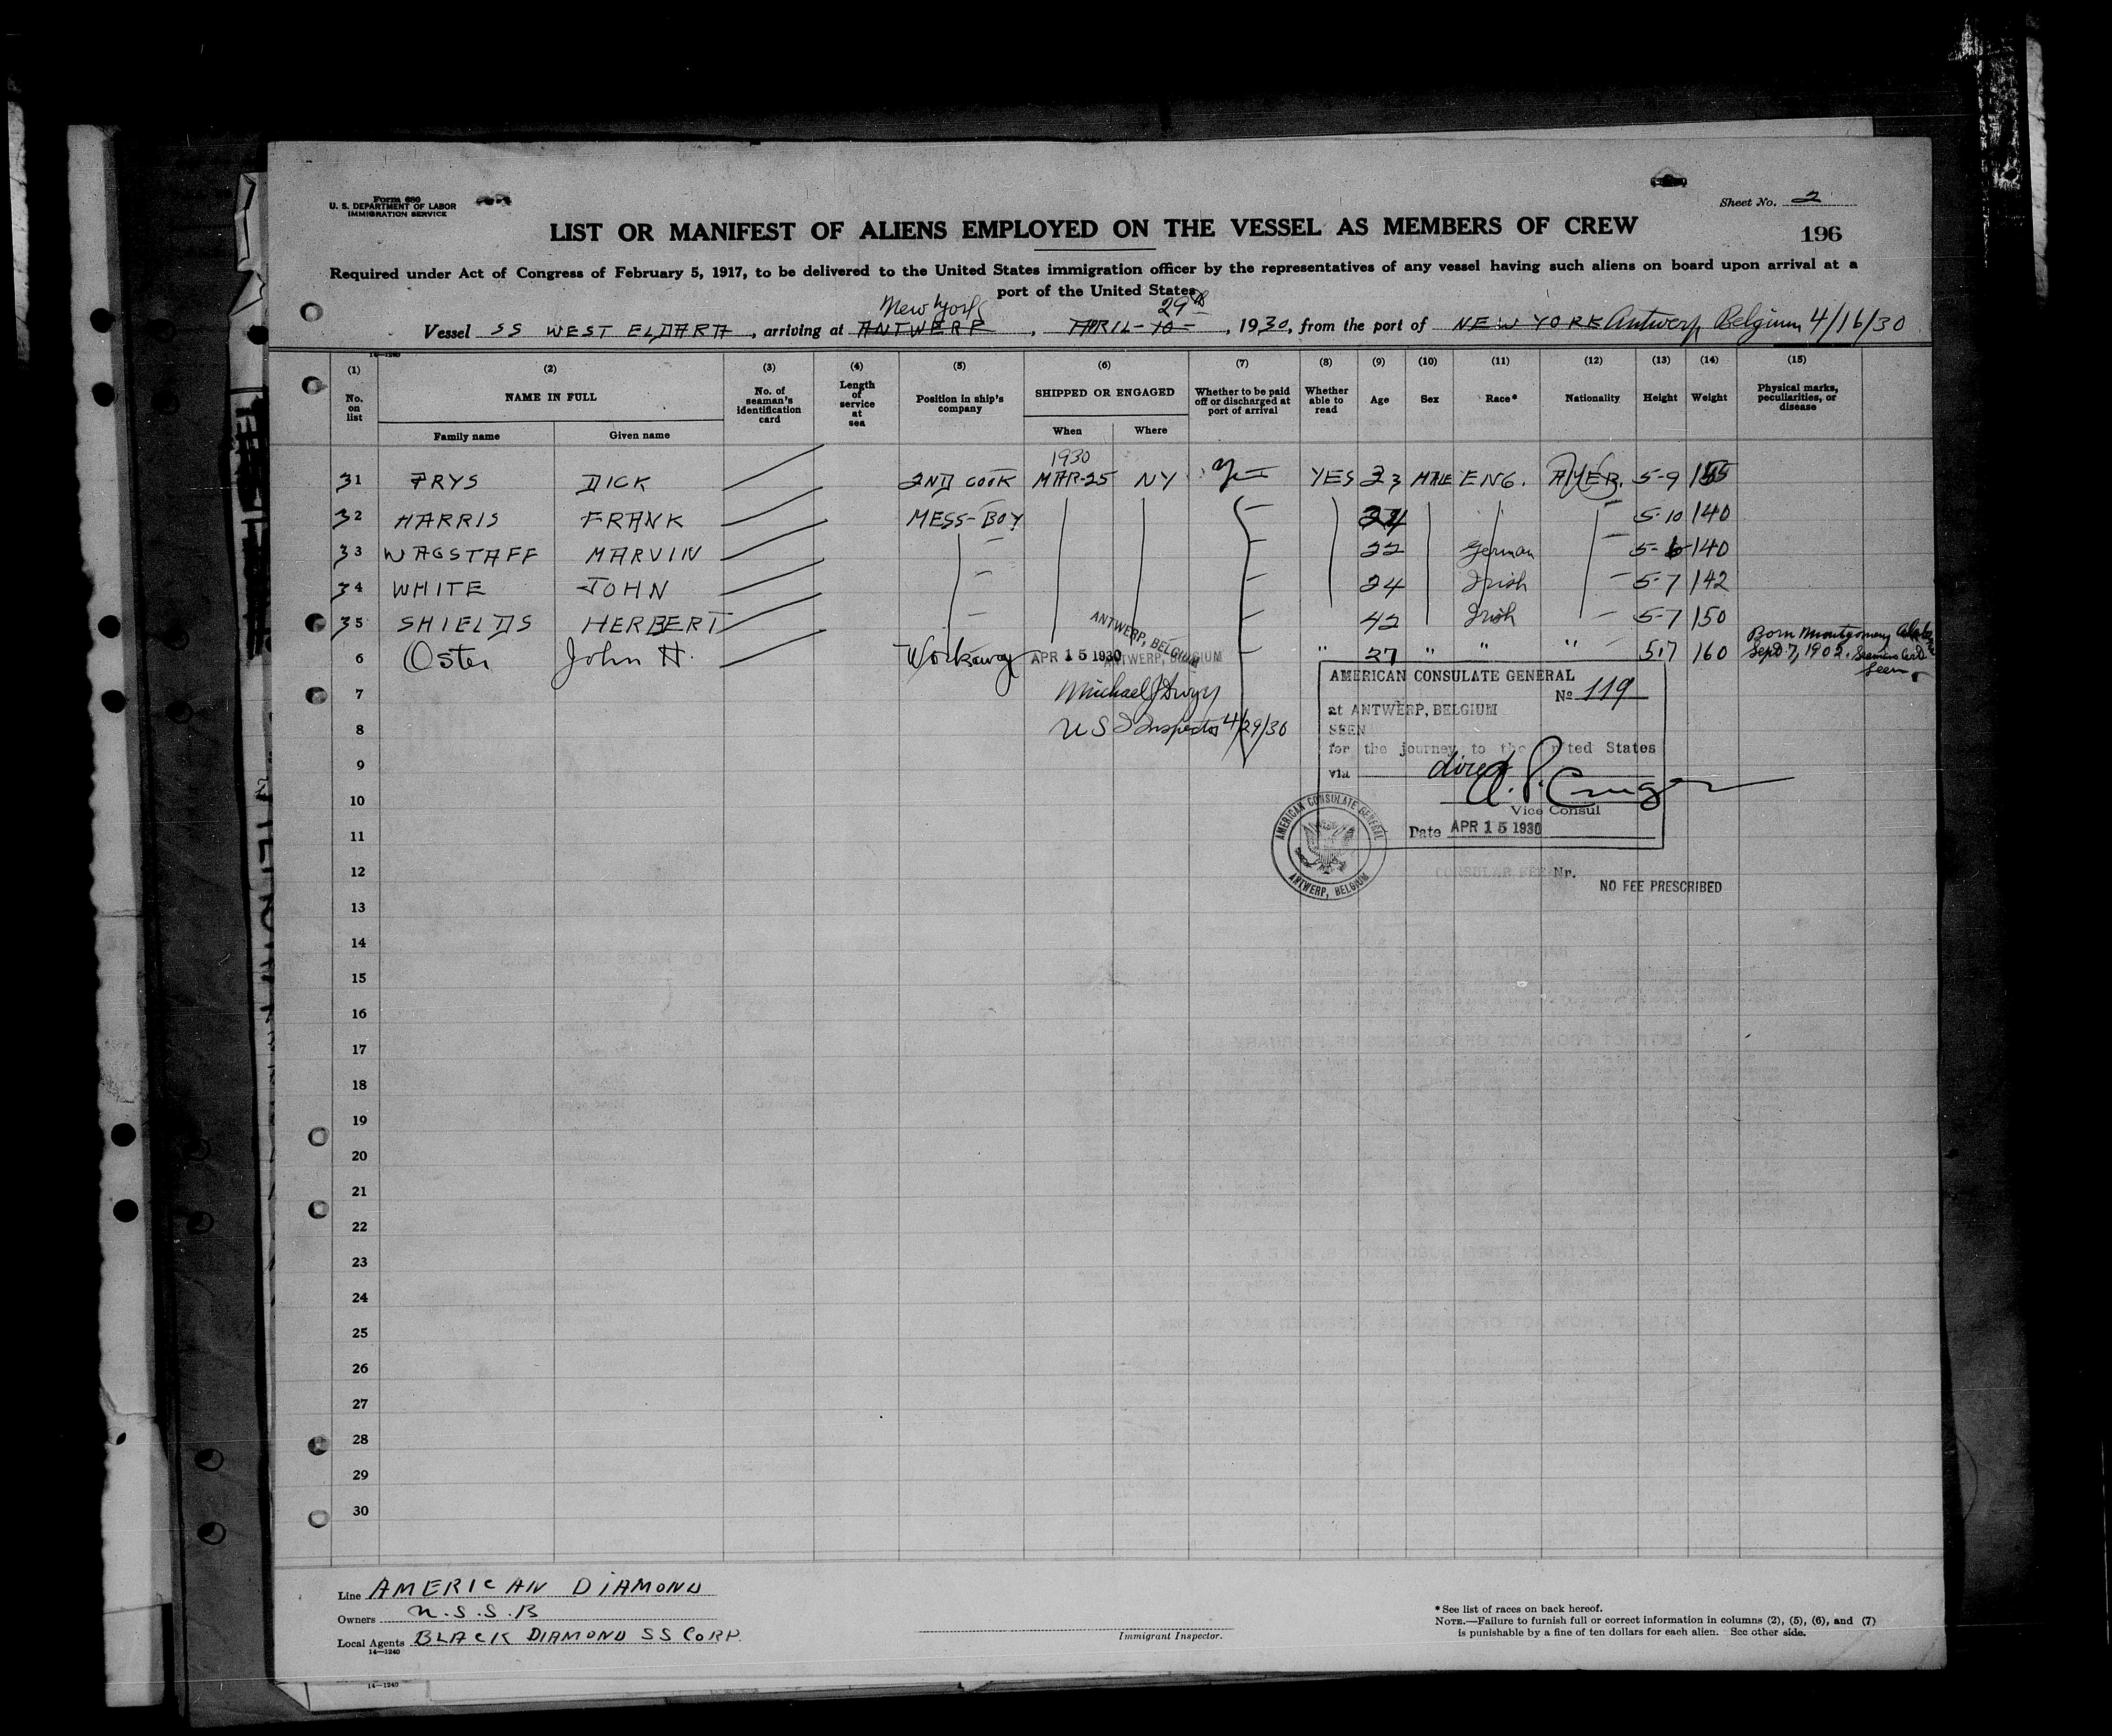 Form 680
U. S. DEPARTMENT OF LABOR
IMMIGRATION SERVICE
Sheet No. 2
LIST OR MANIFEST OF ALIENS EMPLOYED ON THE VESSEL AS MEMBERS OF CREW
196
Required under Act of Congress of February 5, 1917, to be delivered to the United States immigration officer by the representatives of any vessel having such aliens on board upon arrival at a
port of the United States
New York 29th
Vessel SS WEST ELDARA, arriving at ANTWERP, APRIL-10-, 1930, from the port of NEW YORK Antwerp, Belgium 4/16/30
14—1240
(1) (2) (3) (4) (5) (6) (7) (8) (9) (10) (11) (12) (13) (14) (15)
No. on list NAME IN FULL No. of seaman's identification card Length of service at sea Position in ship's company SHIPPED OR ENGAGED Whether to be paid off or discharged at port of arrival Whether able to read Age Sex Race* Nationality Height Weight Physical marks, peculiarities, or disease
Family name Given name When Where
1930
31 PRYS DICK 2ND COOK MAR-25 NY Yes YES 23 MALE ENG. AMER. 5-9 155
32 HARRIS FRANK MESS-BOY 24 5-10 140
33 WAGSTAFF MARVIN 22 German 5-6 140
34 WHITE JOHN 24 Irish 5-7 142
35 SHIELDS HERBERT 42 Irish 5-7 150
ANTWERP, BELGIUM
6 Oster John H. Workaway APR 15 1930 ANTWERP, BELGIUM " 27 " " " 5.7 160 Born Montgomery
Sept 7, 1902. Seamans Card
Seen
7 Michael J Dwyer
8 U S I Inspector 4/29/30
AMERICAN CONSULATE GENERAL
No 119
at ANTWERP, BELGIUM
SEEN
for the journey to the United States
via direct
Vice Consul
Date APR 15 1930
AMERICAN CONSULATE GENERAL
ANTWERP, BELGIUM
CONSULAR FEE Nr.
NO FEE PRESCRIBED
9
10
11
12
13
14
15
16
17
18
19
20
21
22
23
24
25
26
27
28
29
30
Line AMERICAN DIAMOND
Owners U.S.S.B
Local Agents BLACK DIAMOND SS CORP.
14—1240
Immigrant Inspector.
* See list of races on back hereof.
NOTE.—Failure to furnish full or correct information in columns (2), (5), (6), and (7)
is punishable by a fine of ten dollars for each alien. See other side.
14—1240